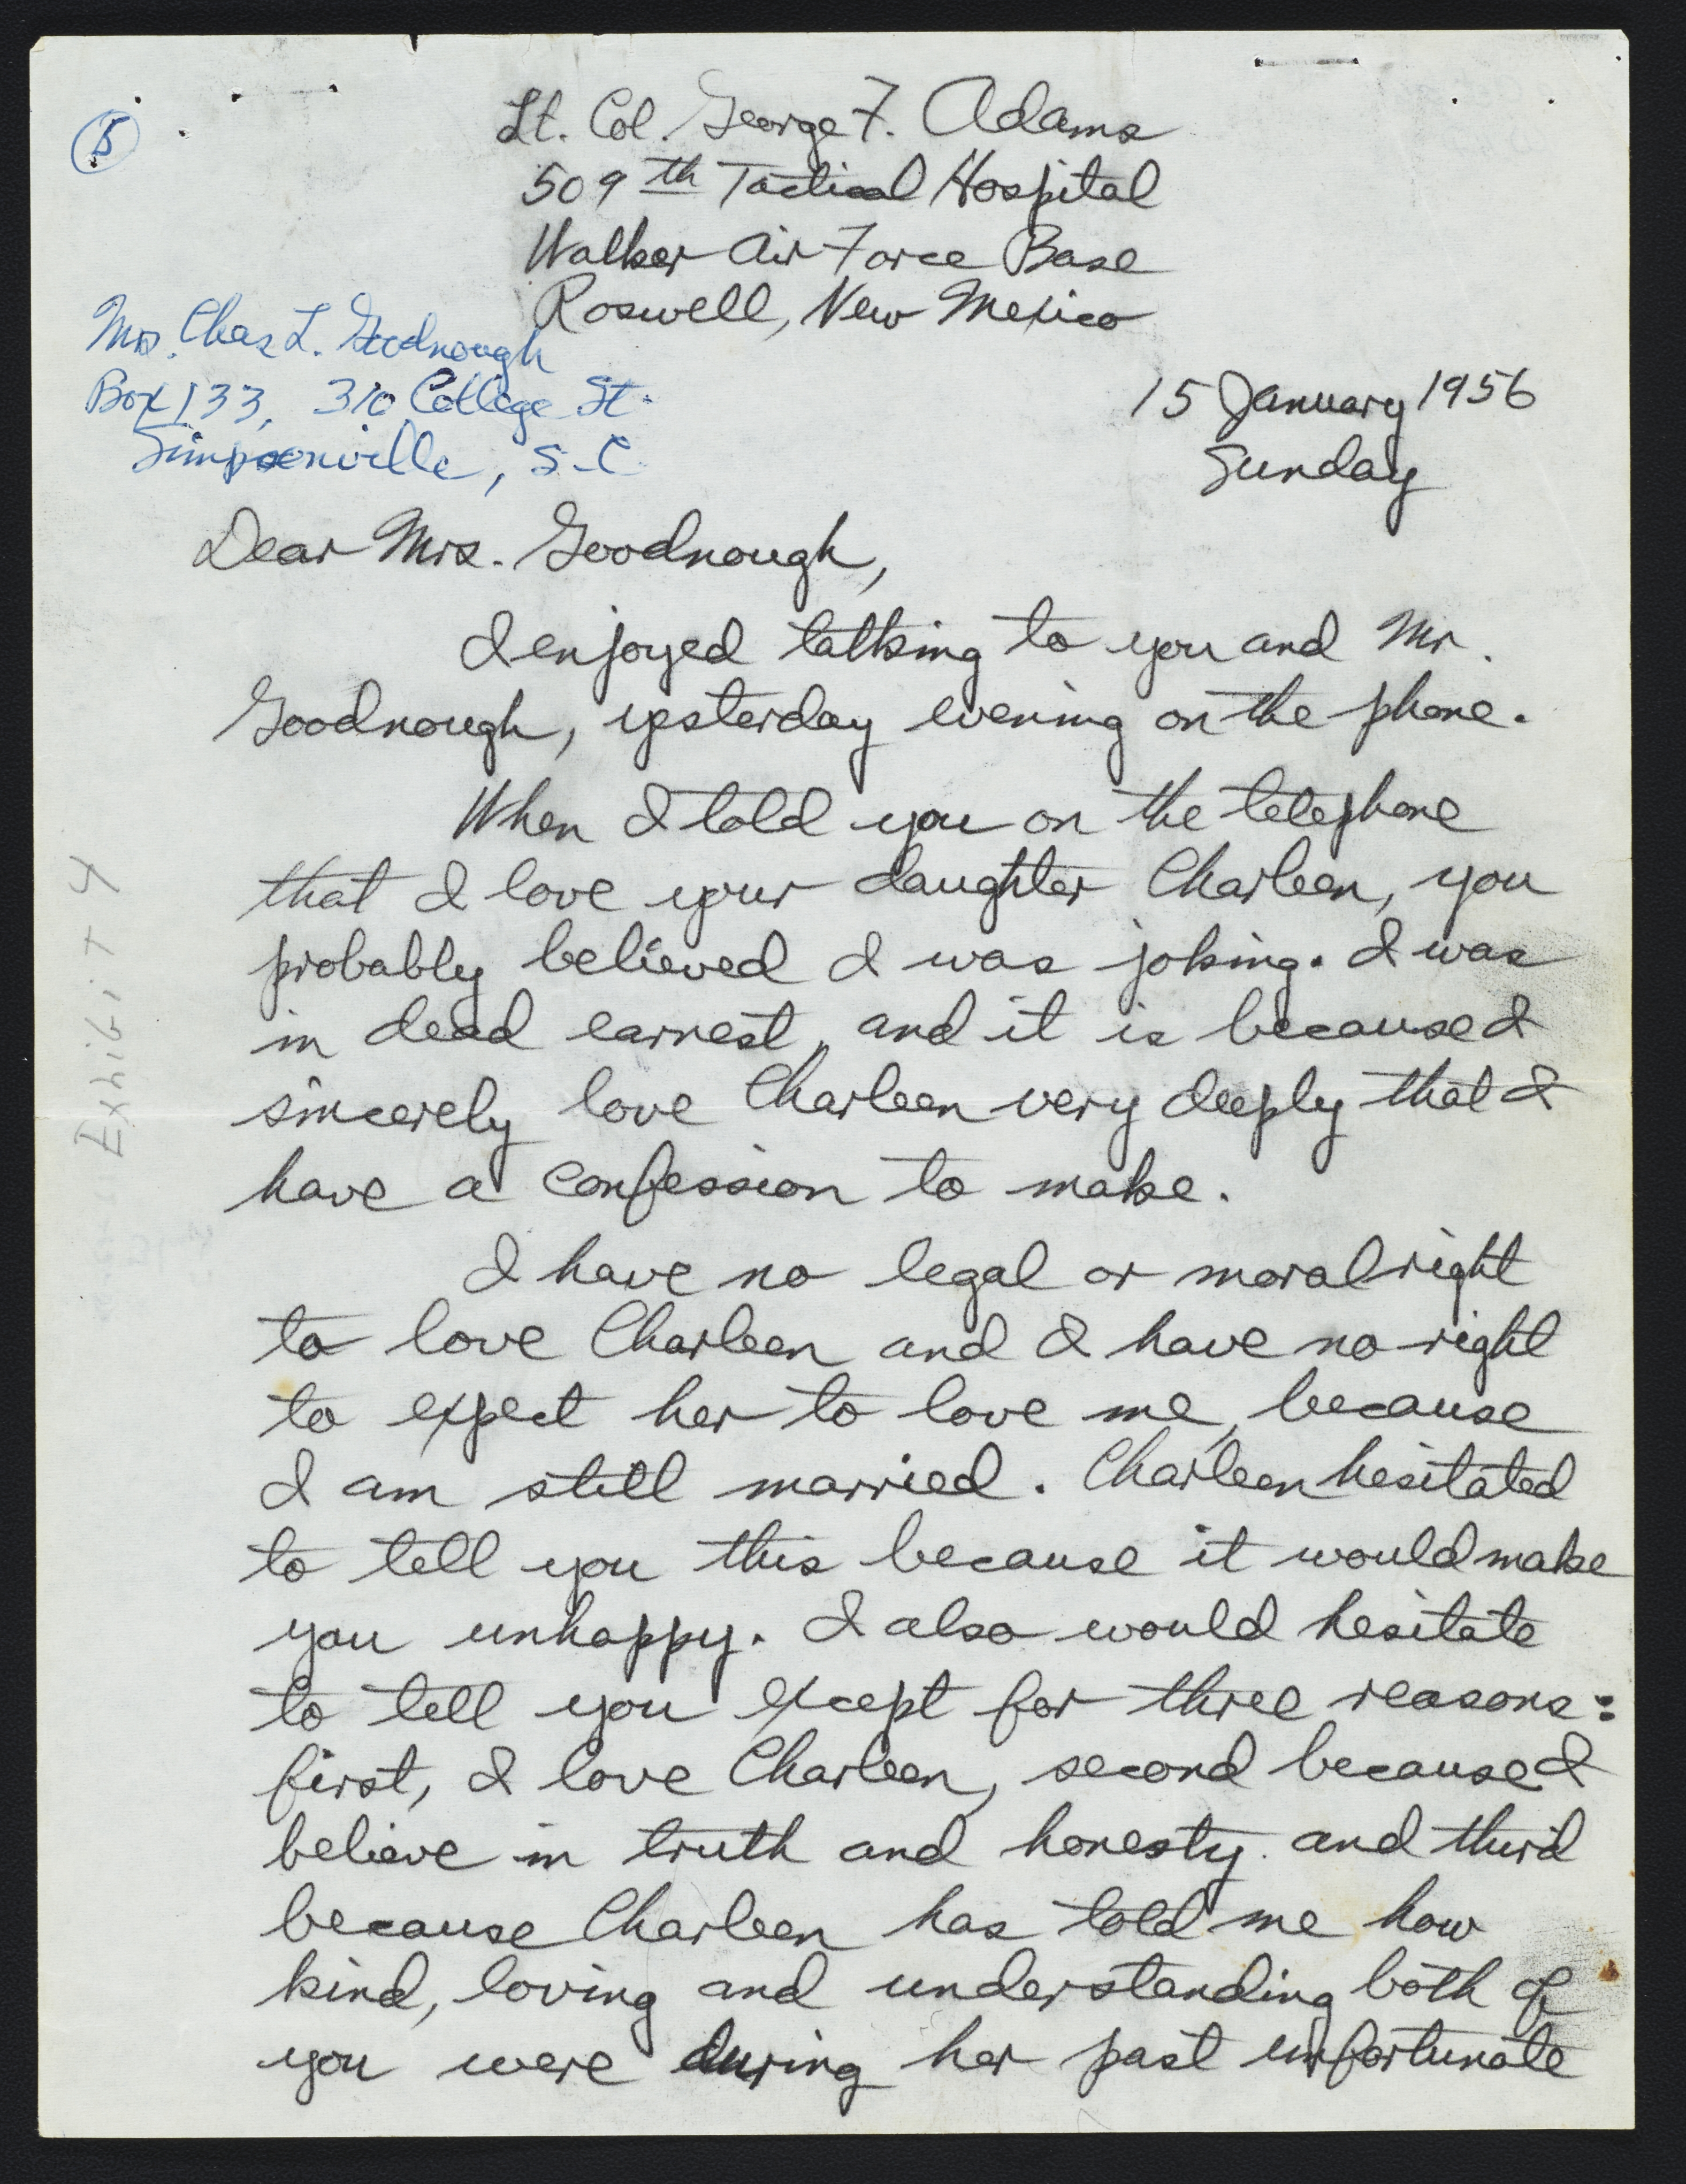 5
Lt. Col. George F. Adams
509th Tactical Hospital
Walker Air Force Base
Roswell, New Mexico
Mrs. Chas L. Goodnough
Box 133, 310 College St.
Simpsonville, S.C.
15 January 1956
Sunday
Dear Mrs. Goodnough,
I enjoyed talking to you and Mr.
Goodnough, yesterday evening on the phone.
When I told you on the telephone
that I love your daughter Charleen, you
probably believed I was joking. I was
in dead earnest, and it is because I
sincerely love Charleen very deeply that I
have a confession to make.
I have no legal or moral right
to love Charleen and I have no right
to expect her to love me, because
I am still married. Charleen hesitated
to tell you this because it would make
you unhappy. I also would hesitate
to tell you except for three reasons:
first, I love Charleen, second because I
believe in truth and honesty. and third
because Charleen has told me how
kind, loving and understanding both of
you were during her past unfortunate
Exhibit 4